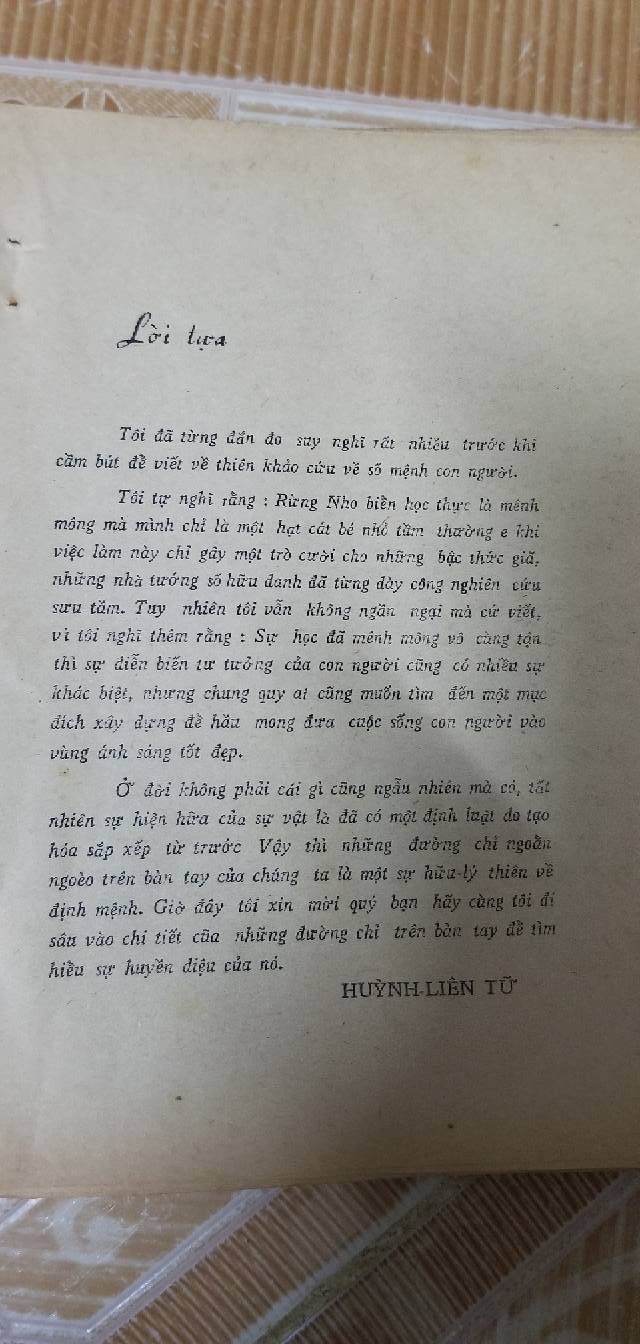 Lời tựa
Tôi đã từng đắn đo suy nghĩ rất nhiều trước khi
cầm bút để viết về thiên khảo cứu về số mệnh con người.
Tôi tự nghĩ rằng : Rừng Nho biển học thực là mênh
mông mà mình chỉ là một hạt cát bé nhỏ tầm thường e khi
việc làm này chỉ gây một trò cười cho những bậc thức giả,
những nhà tướng số hữu danh đã từng dày công nghiên cứu
sưu tầm. Tuy nhiên tôi vẫn không ngần ngại mà cứ viết,
vì tôi nghĩ thêm rằng : Sự học đã mênh mông vô cùng tận
thì sự diễn biến tư tưởng của con người cũng có nhiều sự
khác biệt, nhưng chung quy ai cũng muốn tìm đến một mục
đích xây dựng để hầu mong đưa cuộc sống con người vào
vùng ánh sáng tốt đẹp.
Ở đời không phải cái gì cũng ngẫu nhiên mà có, tất
nhiên sự hiện hữa của sự vật là đã có một định luật do tạo
hóa sắp xếp từ trước Vậy thì những đường chỉ ngoằn
ngoèo trên bàn tay của chúng ta là một sự hữu-lý thiên về
định mệnh. Giờ đây tôi xin mời quý bạn hãy cùng tôi đi
sâu vào chi tiết của những đường chỉ trên bàn tay để tìm
hiểu sự huyền diệu của nó.
HUỲNH-LIÊN TỬ